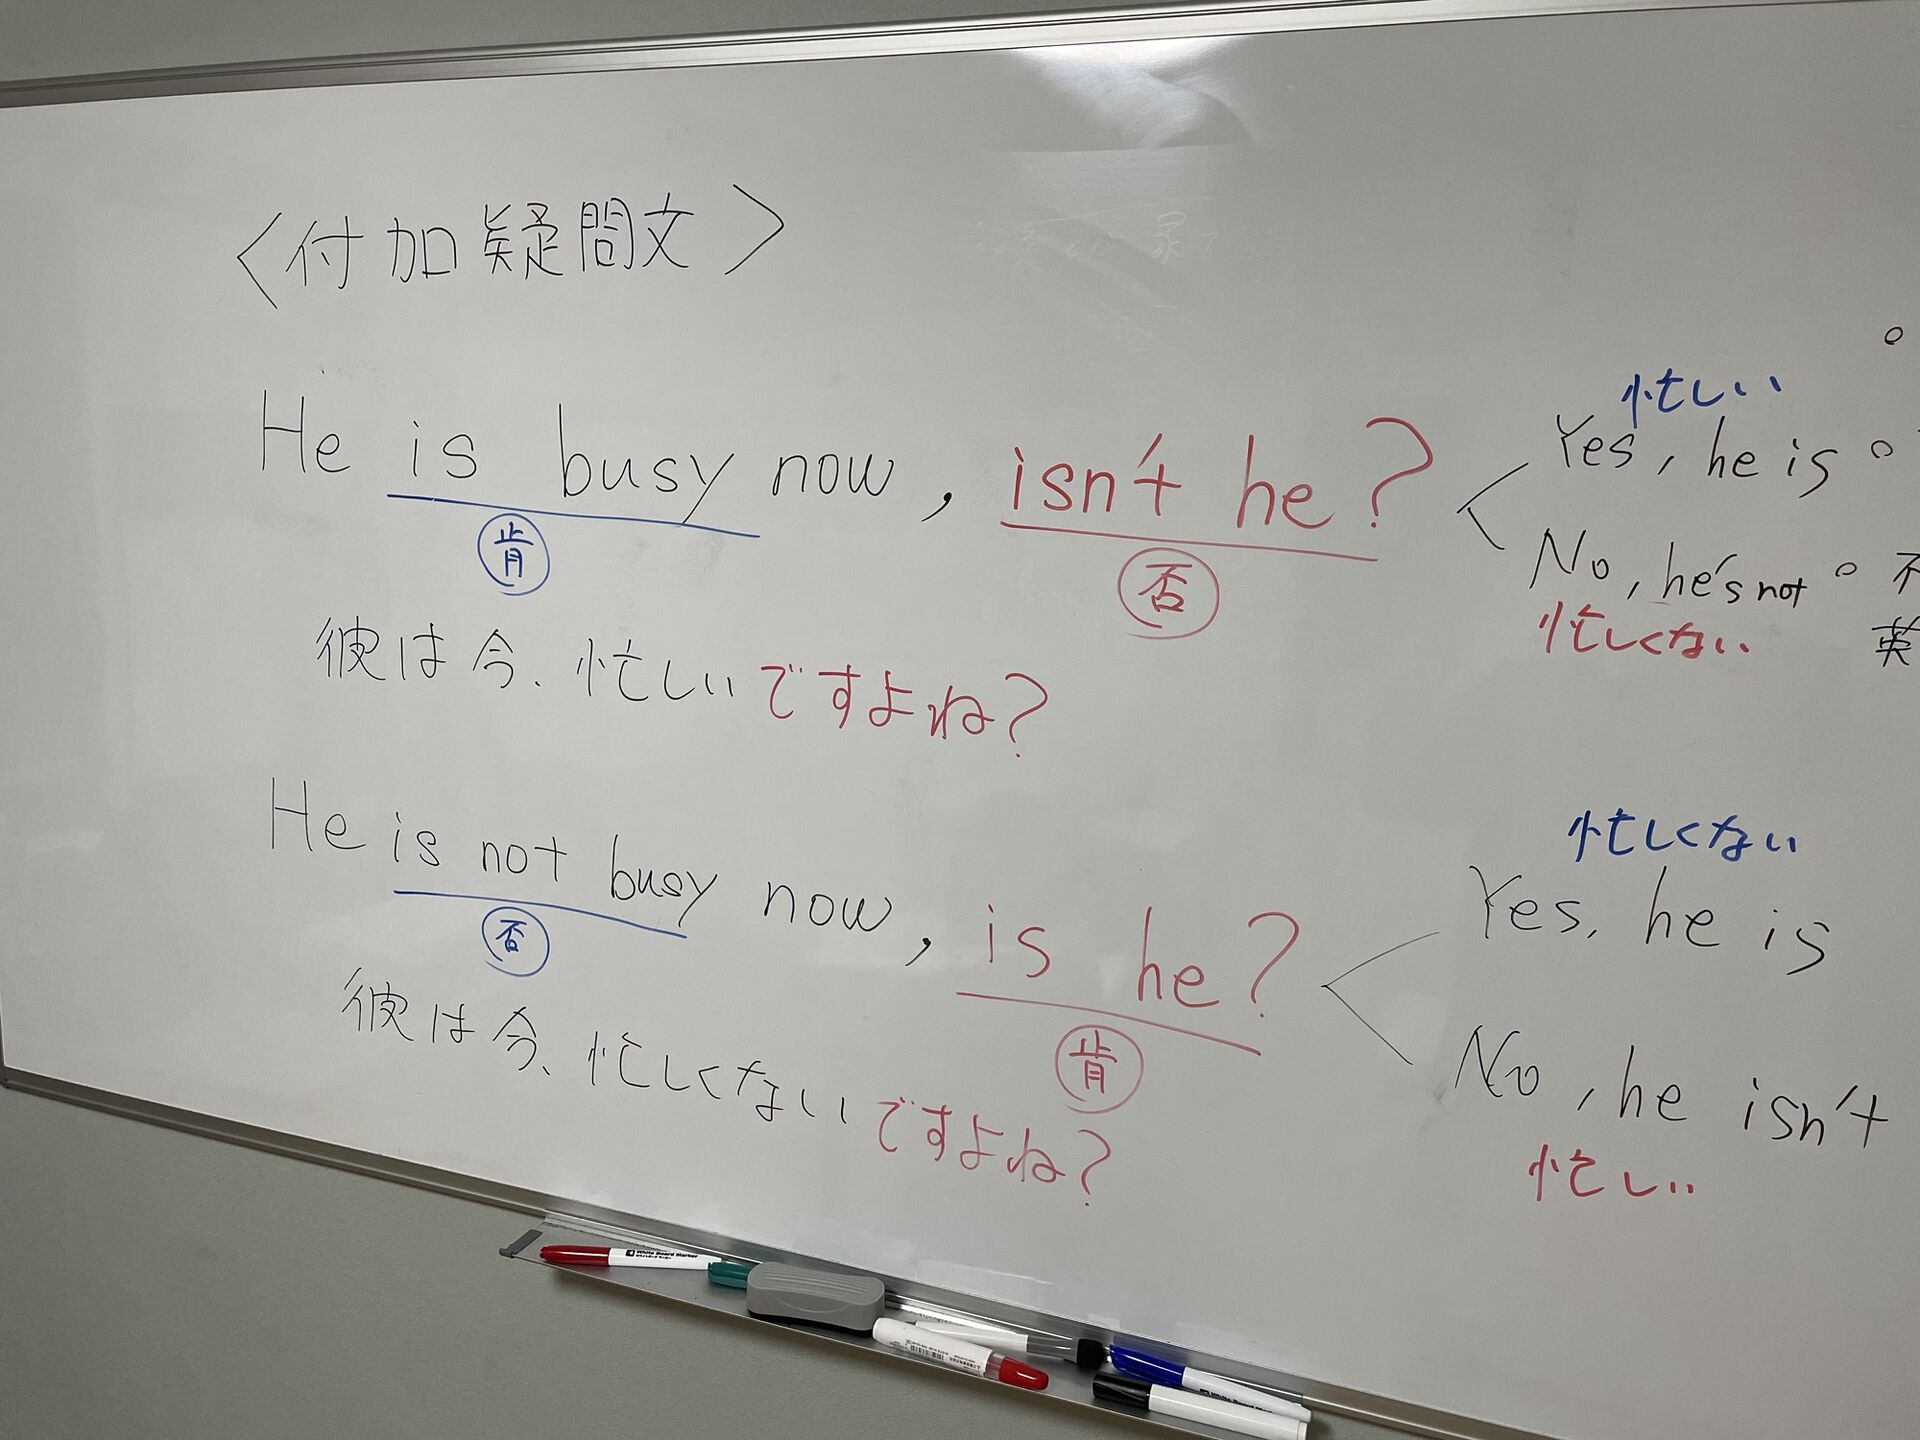 〈付加疑問文〉
He is busy now, isn't he?
肯
否
彼は今、忙しいですよね?
忙しい
Yes, he is
No, he's not
忙しくない
不
英
He is not busy now, is he?
否
肯
彼は今、忙しくないですよね?
忙しくない
Yes, he is
No, he isn't
忙しい
White Board Marker